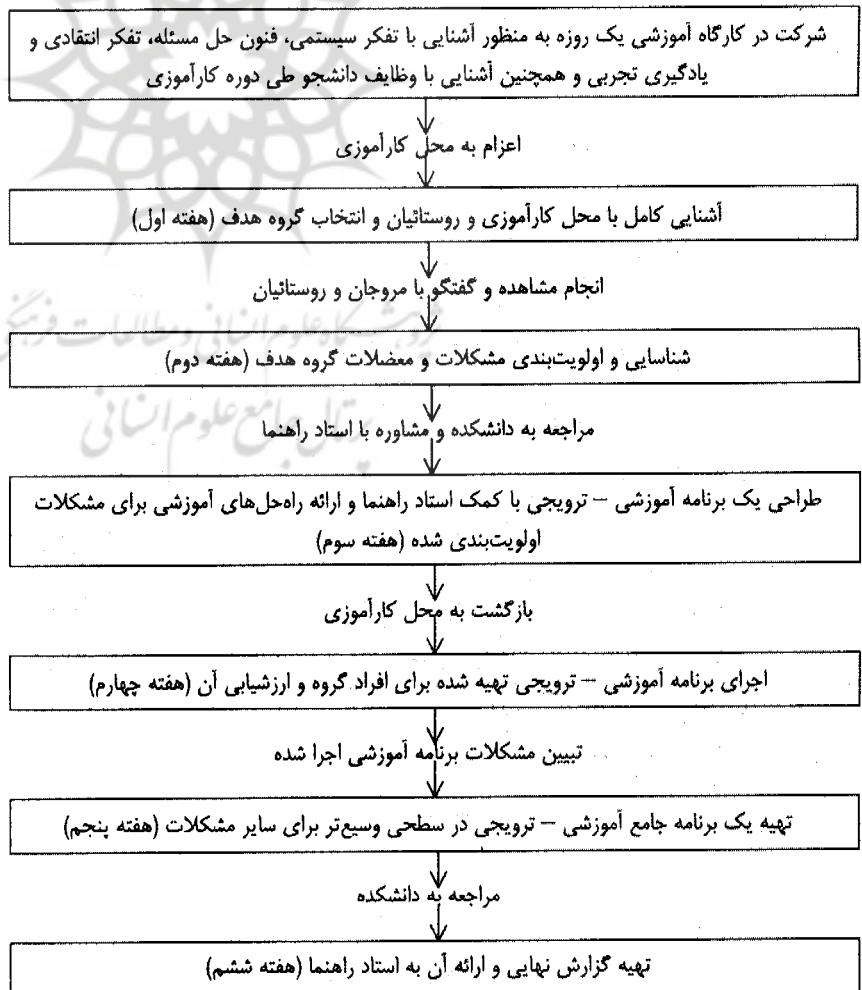 شرکت در کارگاه آموزشی یک روزه به منظور آشنایی با تفکر سیستمی، فنون حل مسئله، تفکر انتقادی و
یادگیری تجربی و همچنین آشنایی با وظایف دانشجو طی دوره کارآموزی
اعزام به محل کارآموزی
آشنایی کامل با محل کارآموزی و روستائیان و انتخاب گروه هدف (هفته اول)
انجام مشاهده و گفتگو با مروجان و روستائیان
پژوهشگاه علوم انسانی و مطالعات فرهنگی
شناسایی و اولویت‌بندی مشکلات و معضلات گروه هدف (هفته دوم)
پرتال جامع علوم انسانی
مراجعه به دانشکده و مشاوره با استاد راهنما
طراحی یک برنامه آموزشی – ترویجی با کمک استاد راهنما و ارائه راه‌حل‌های آموزشی برای مشکلات
اولویت‌بندی شده (هفته سوم)
بازگشت به محل کارآموزی
اجرای برنامه آموزشی – ترویجی تهیه شده برای افراد گروه و ارزشیابی آن (هفته چهارم)
تبیین مشکلات برنامه آموزشی اجرا شده
تهیه یک برنامه جامع آموزشی – ترویجی در سطحی وسیع‌تر برای سایر مشکلات (هفته پنجم)
مراجعه به دانشکده
تهیه گزارش نهایی و ارائه آن به استاد راهنما (هفته ششم)